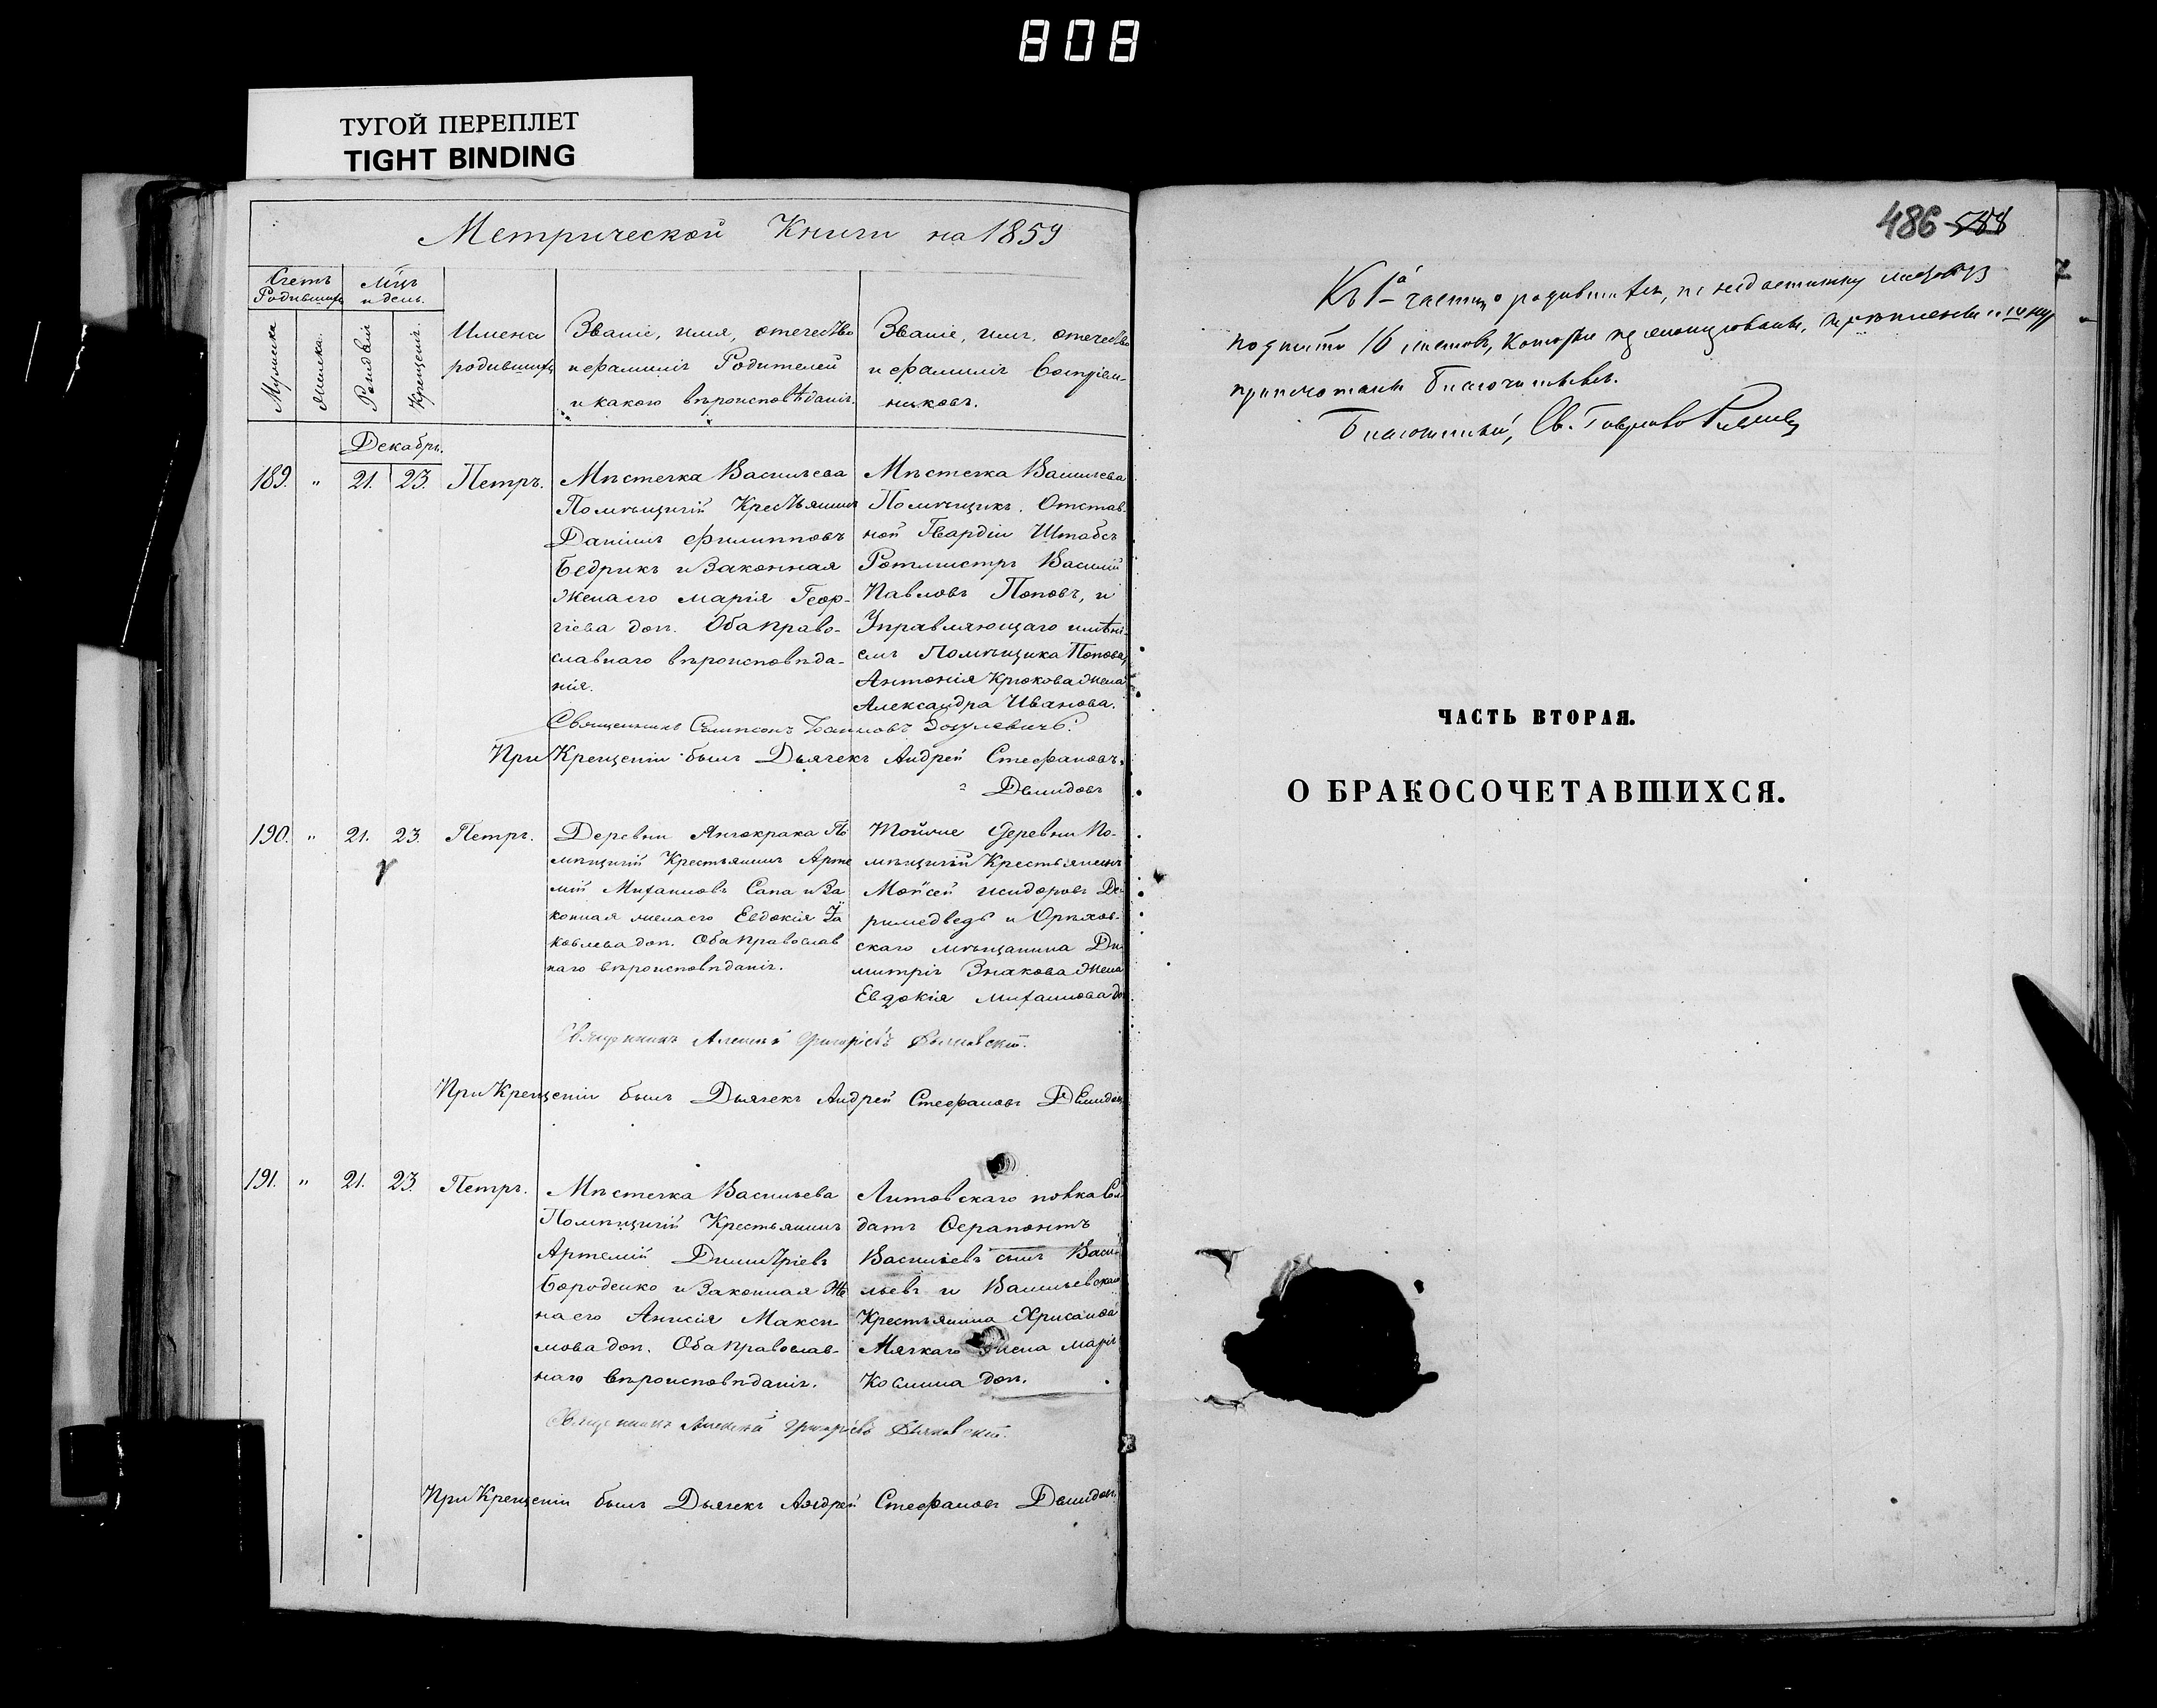 808
ТУГОЙ ПЕРЕПЛЕТ
TIGHT BINDING
Метрической Книги на 1859
Счетъ Родившихъ
Мѣцъ и день.
Мужеска
Женска.
Рождѣнія
Крещенія
Имена
родившихъ
Званіе, имя, отечество
и фамилія Родителей
и какого вѣроисповѣданія.
Званіе, имя, отечество
и фамилія Воспріем-
никовъ.
Декабрь.
189. " 21. 23. Петръ.
Мѣстечка Васильева
Помѣщичій Крестьянинъ
Даніилъ Филипповъ
Бедрикъ и Законная
Жена его Марія Геор-
гіева доч. Оба Право-
славнаго вѣроисповѣда-
нія.
Мѣстечка Васильева
Помѣщикъ. Отстав-
ной Гвардіи Штабсъ
Ротмистръ Василій
Павловъ Поповъ, и
Управляющаго имѣні-
емъ Помѣщика Попова,
Антонія Крюкова Жена
Александра Иванова.
Священникъ
При Крещеніи былъ Дьячекъ Андрей Стефановъ
Демидовъ
190. " 21. 23. Петръ.
Деревни Янчокрака По
мѣщичій Крестьянинъ Арте
мій Михаиловъ Сапа и За
конная жена его Евдокія Іа
ковлева доч. Оба Православ
наго вѣроисповѣданія.
Тойже деревни По-
мѣщичій Крестьянинъ
Мойсей Исидоровъ Де
римедведь и Орѣхов-
скаго мѣщанина Ди
митрія Знакова Жена
Евдокія Михаилова доч
Священникъ Алексѣй Григорьевъ
При Крещеніи былъ Дьячекъ Андрей Стефановъ Демидовъ
191. " 21. 23. Петръ.
Мѣстечка Васильева
Помѣщичій Крестьянинъ
Артемій Димитріевъ
Бороденко и Законная Же
на его Анисія Макси-
мова доч. Оба Православ-
наго вѣроисповѣданія.
Литовскаго полка Сол
датъ Ѳерапонтъ
Васильевъ сынъ Васи-
льевъ и Васильевскаго
Крестьянина Хрисанфа
Мягкаго Жена Марія
Косьмина доч.
Священникъ Алексѣй Григорьевъ
При Крещеніи былъ Дьячекъ Андрей Стефановъ Демидов
486 588
Къ 1й части о родившихся, по недостатку
подшито 16 листовъ, которые
Благочинный, Св. Гавріилъ
ЧАСТЬ ВТОРАЯ.
О БРАКОСОЧЕТАВШИХСЯ.